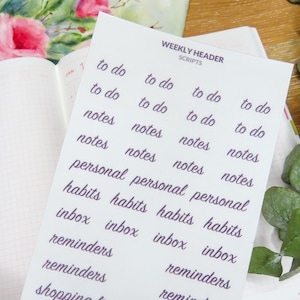 WEEKLY HEADER
SCRIPTS
to do to do to do to do
to do to do to do to do
notes notes notes notes
notes notes notes notes
personal personal personal
habits habits habits habits
inbox inbox inbox inbox
reminders reminders
reminders reminders
shopping